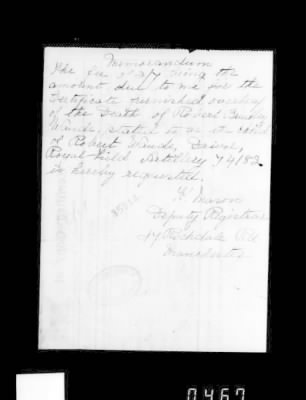 Memorandum
The fee of 2/7 being the
amount due to me for the
Certificate furnished overleaf
of the Death of Robert
Wands, stated to be the child
of Robert Wands, Driver,
Royal Field Artillery 74182
is hereby requested.
Mason
Deputy Registrar
Rochdale Rd
Manchester
0467